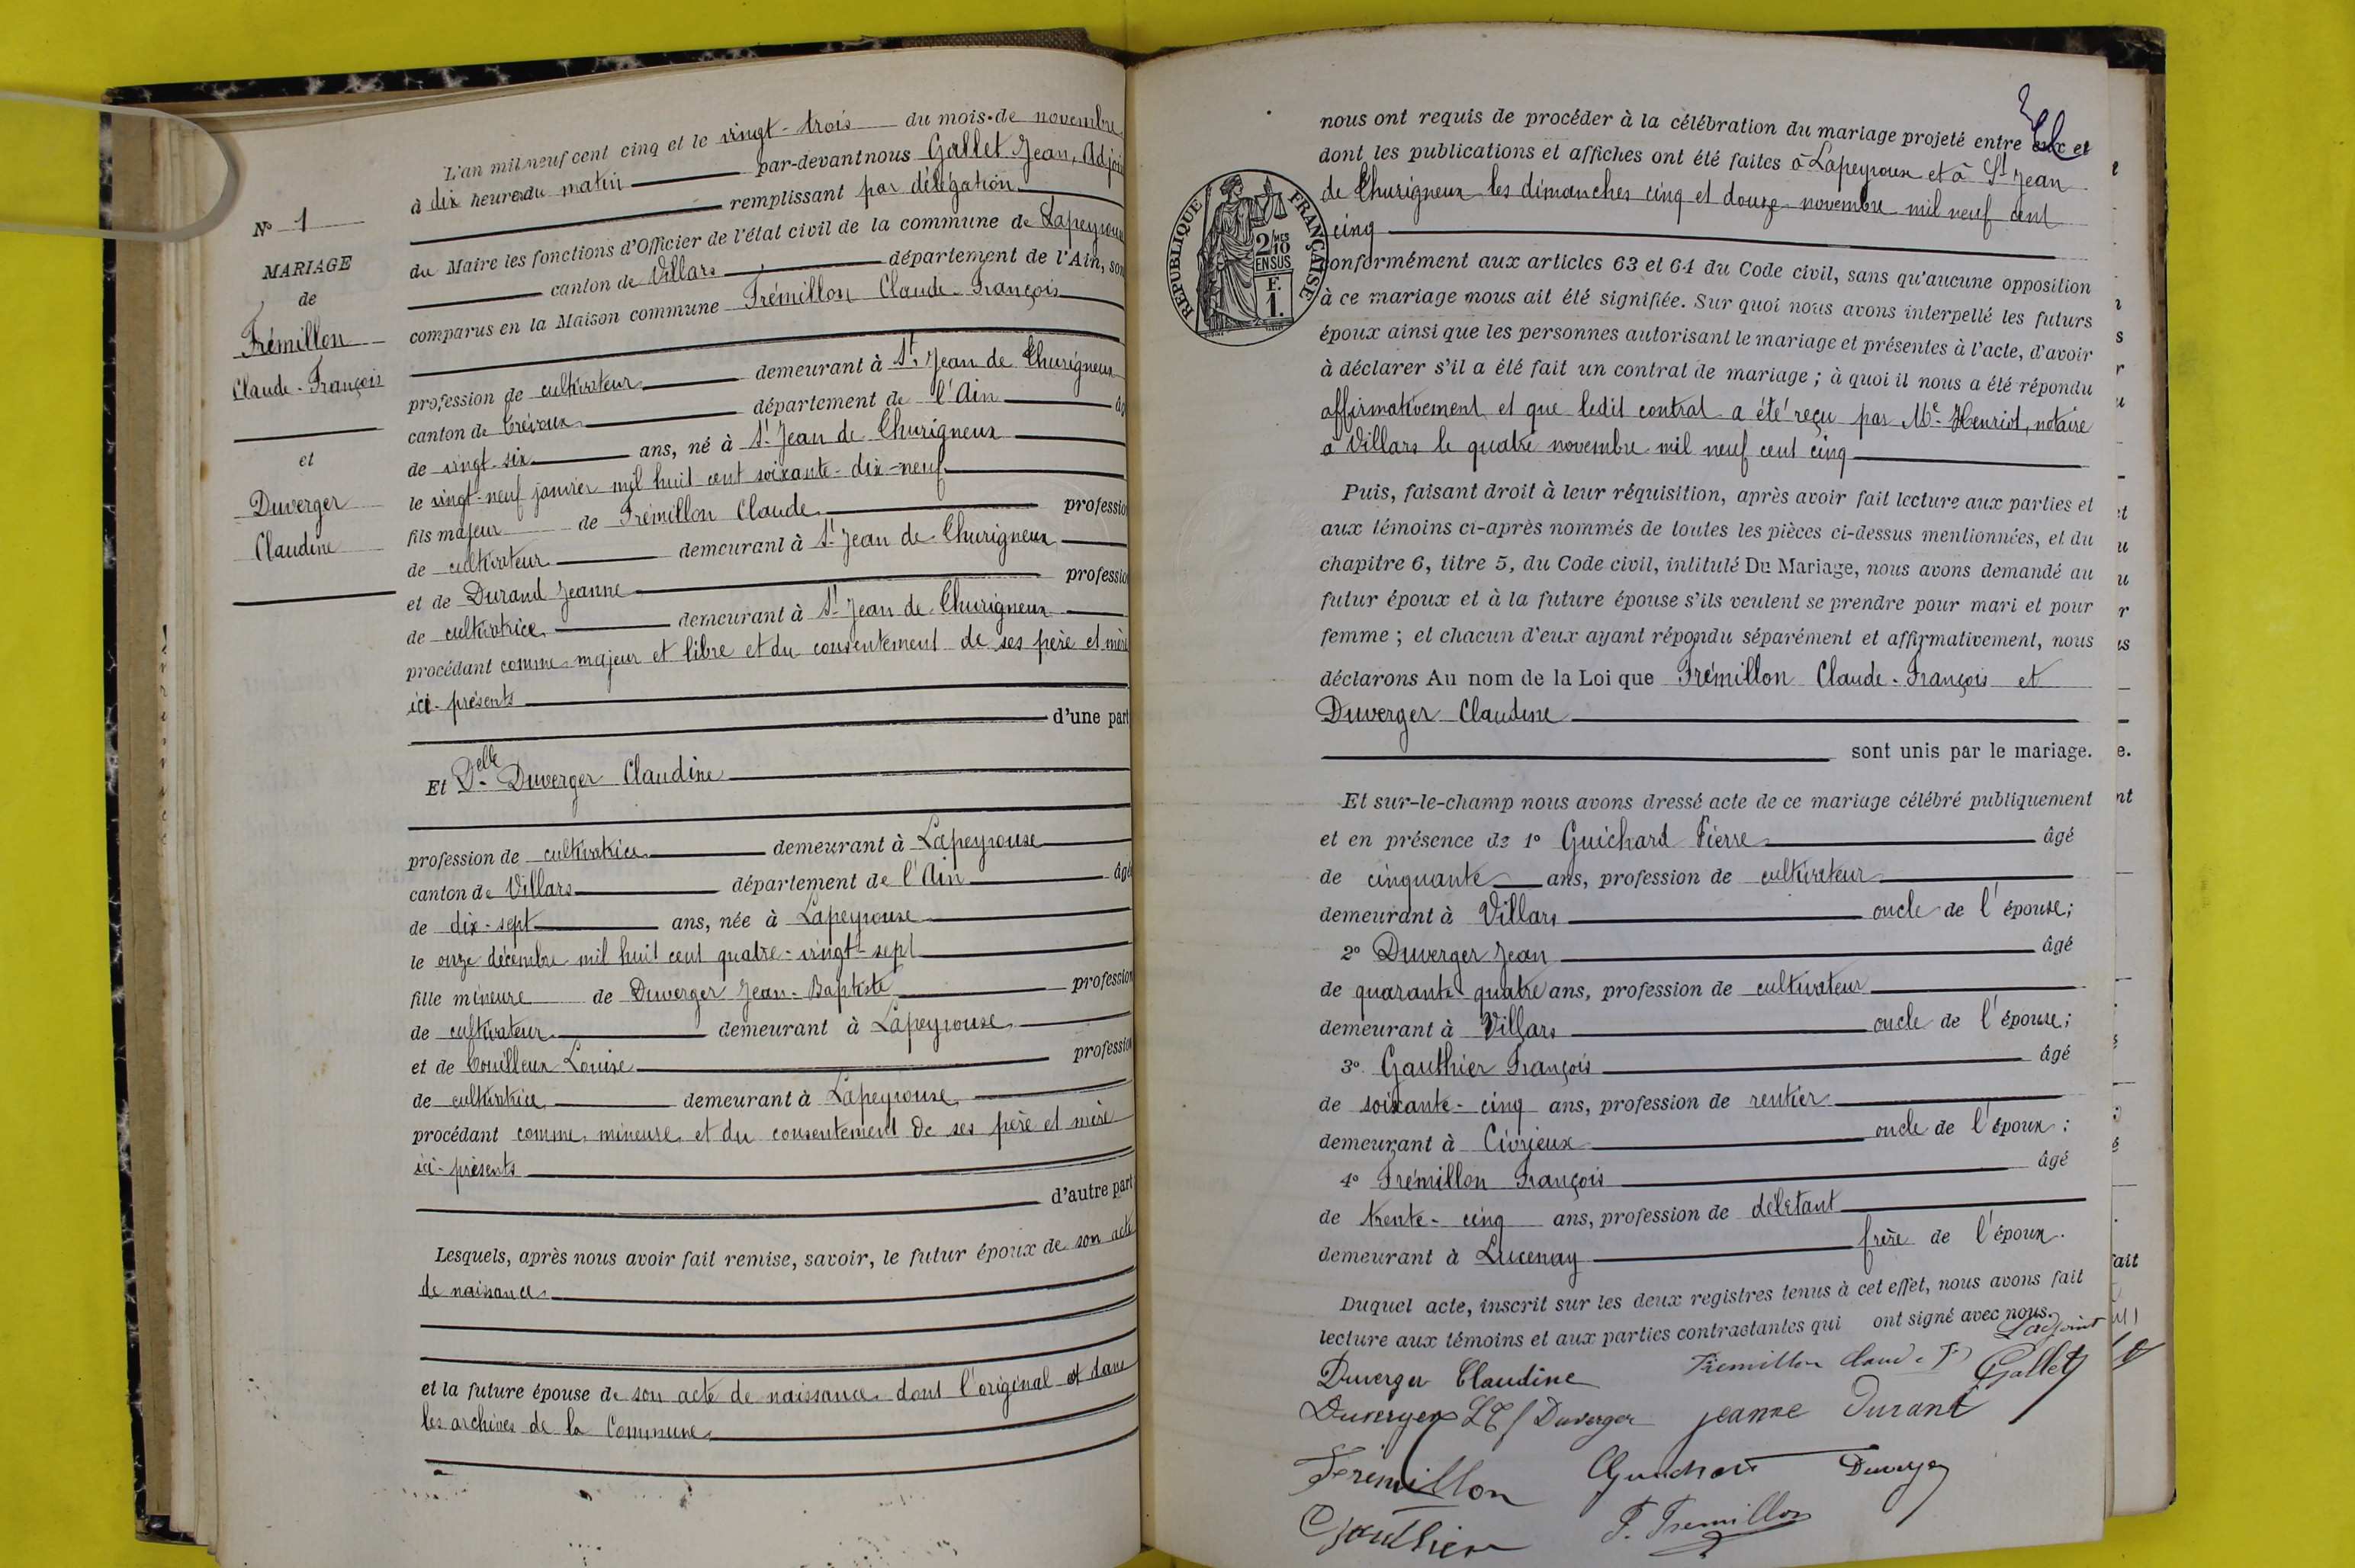 L'an mil neuf cent cinq et le vingt-trois du mois de novembre
à dix heures du matin par-devant nous Gallet Jean, Adjoi
remplissant par délégation
du Maire les fonctions d'Officier de l'état civil de la commune de Lapeyrouse
canton de Villars département de l'Ain, son
comparus en la Maison commune Trémillon Claude-François
profession de cultivateur demeurant à St Jean de Thurigneux
canton de Trévoux département de l'Ain âg
de vingt-six ans, né à St Jean de Thurigneux
le vingt-neuf janvier mil huit cent soixante-dix-neuf
fils majeur de Trémillon Claude professio
de cultivateur demeurant à St Jean de Thurigneux
et de Durand Jeanne professio
de cultivatrice demeurant à St Jean de Thurigneux
procédant comme majeur et libre et du consentement de ses père et mère
ici-présents
d'une part
N° 1
MARIAGE
de
Trémillon
Claude-François
et
Duverger
Claudine
Et Delle Duverger Claudine
profession de cultivatrice demeurant à Lapeyrouse
canton de Villars département de l'Ain âgé
de dix-sept ans, née à Lapeyrouse
le onze décembre mil huit cent quatre-vingt-sept
fille mineure de Duverger Jean-Baptiste profession
de cultivateur demeurant à Lapeyrouse
et de Couilleux Louise profession
de cultivatrice demeurant à Lapeyrouse
procédant comme mineure et du consentement de ses père et mère
ici-présents
d'autre part
Lesquels, après nous avoir fait remise, savoir, le futur époux de son acte
de naissance
et la future épouse de son acte de naissance dont l'original est dans
les archives de la Commune
nous ont requis de procéder à la célébration du mariage projeté entre eux et
dont les publications et affiches ont été faites à Lapeyrouse et à St Jean
de Thurigneux les dimanches cinq et douze novembre mil neuf cent
cinq
RÉPUBLIQUE FRANÇAISE
2/10 MES
EN SUS
F.
1.
conformément aux articles 63 et 64 du Code civil, sans qu'aucune opposition
à ce mariage nous ait été signifiée. Sur quoi nous avons interpellé les futurs
époux ainsi que les personnes autorisant le mariage et présentes à l'acte, d'avoir
à déclarer s'il a été fait un contrat de mariage ; à quoi il nous a été répondu
affirmativement et que ledit contrat a été reçu par Me Henriot, notaire
à Villars le quatre novembre mil neuf cent cinq
Puis, faisant droit à leur réquisition, après avoir fait lecture aux parties et
aux témoins ci-après nommés de toutes les pièces ci-dessus mentionnées, et du
chapitre 6, titre 5, du Code civil, intitulé Du Mariage, nous avons demandé au
futur époux et à la future épouse s'ils veulent se prendre pour mari et pour
femme ; et chacun d'eux ayant répondu séparément et affirmativement, nous
déclarons Au nom de la Loi que Trémillon Claude-François et
Duverger Claudine
sont unis par le mariage.
Et sur-le-champ nous avons dressé acte de ce mariage célébré publiquement
et en présence de 1° Guichard Pierre âgé
de cinquante ans, profession de cultivateur
demeurant à Villars oncle de l'épouse;
2° Duverger Jean âgé
de quarante-quatre ans, profession de cultivateur
demeurant à Villars oncle de l'épouse;
3° Gauthier François âgé
de soixante-cinq ans, profession de rentier
demeurant à Civrieux oncle de l'époux;
4° Trémillon François âgé
de trente-cinq ans, profession de débitant
demeurant à Lucenay frère de l'époux.
Duquel acte, inscrit sur les deux registres tenus à cet effet, nous avons fait
lecture aux témoins et aux parties contractantes qui ont signé avec nous.
L'adjoint
Duverger Claudine Tremillon Claude F Gallet
Duverger Duverger jeanne Durand
Tremillon Guichard Duverger
Gauthier F. Tremillon